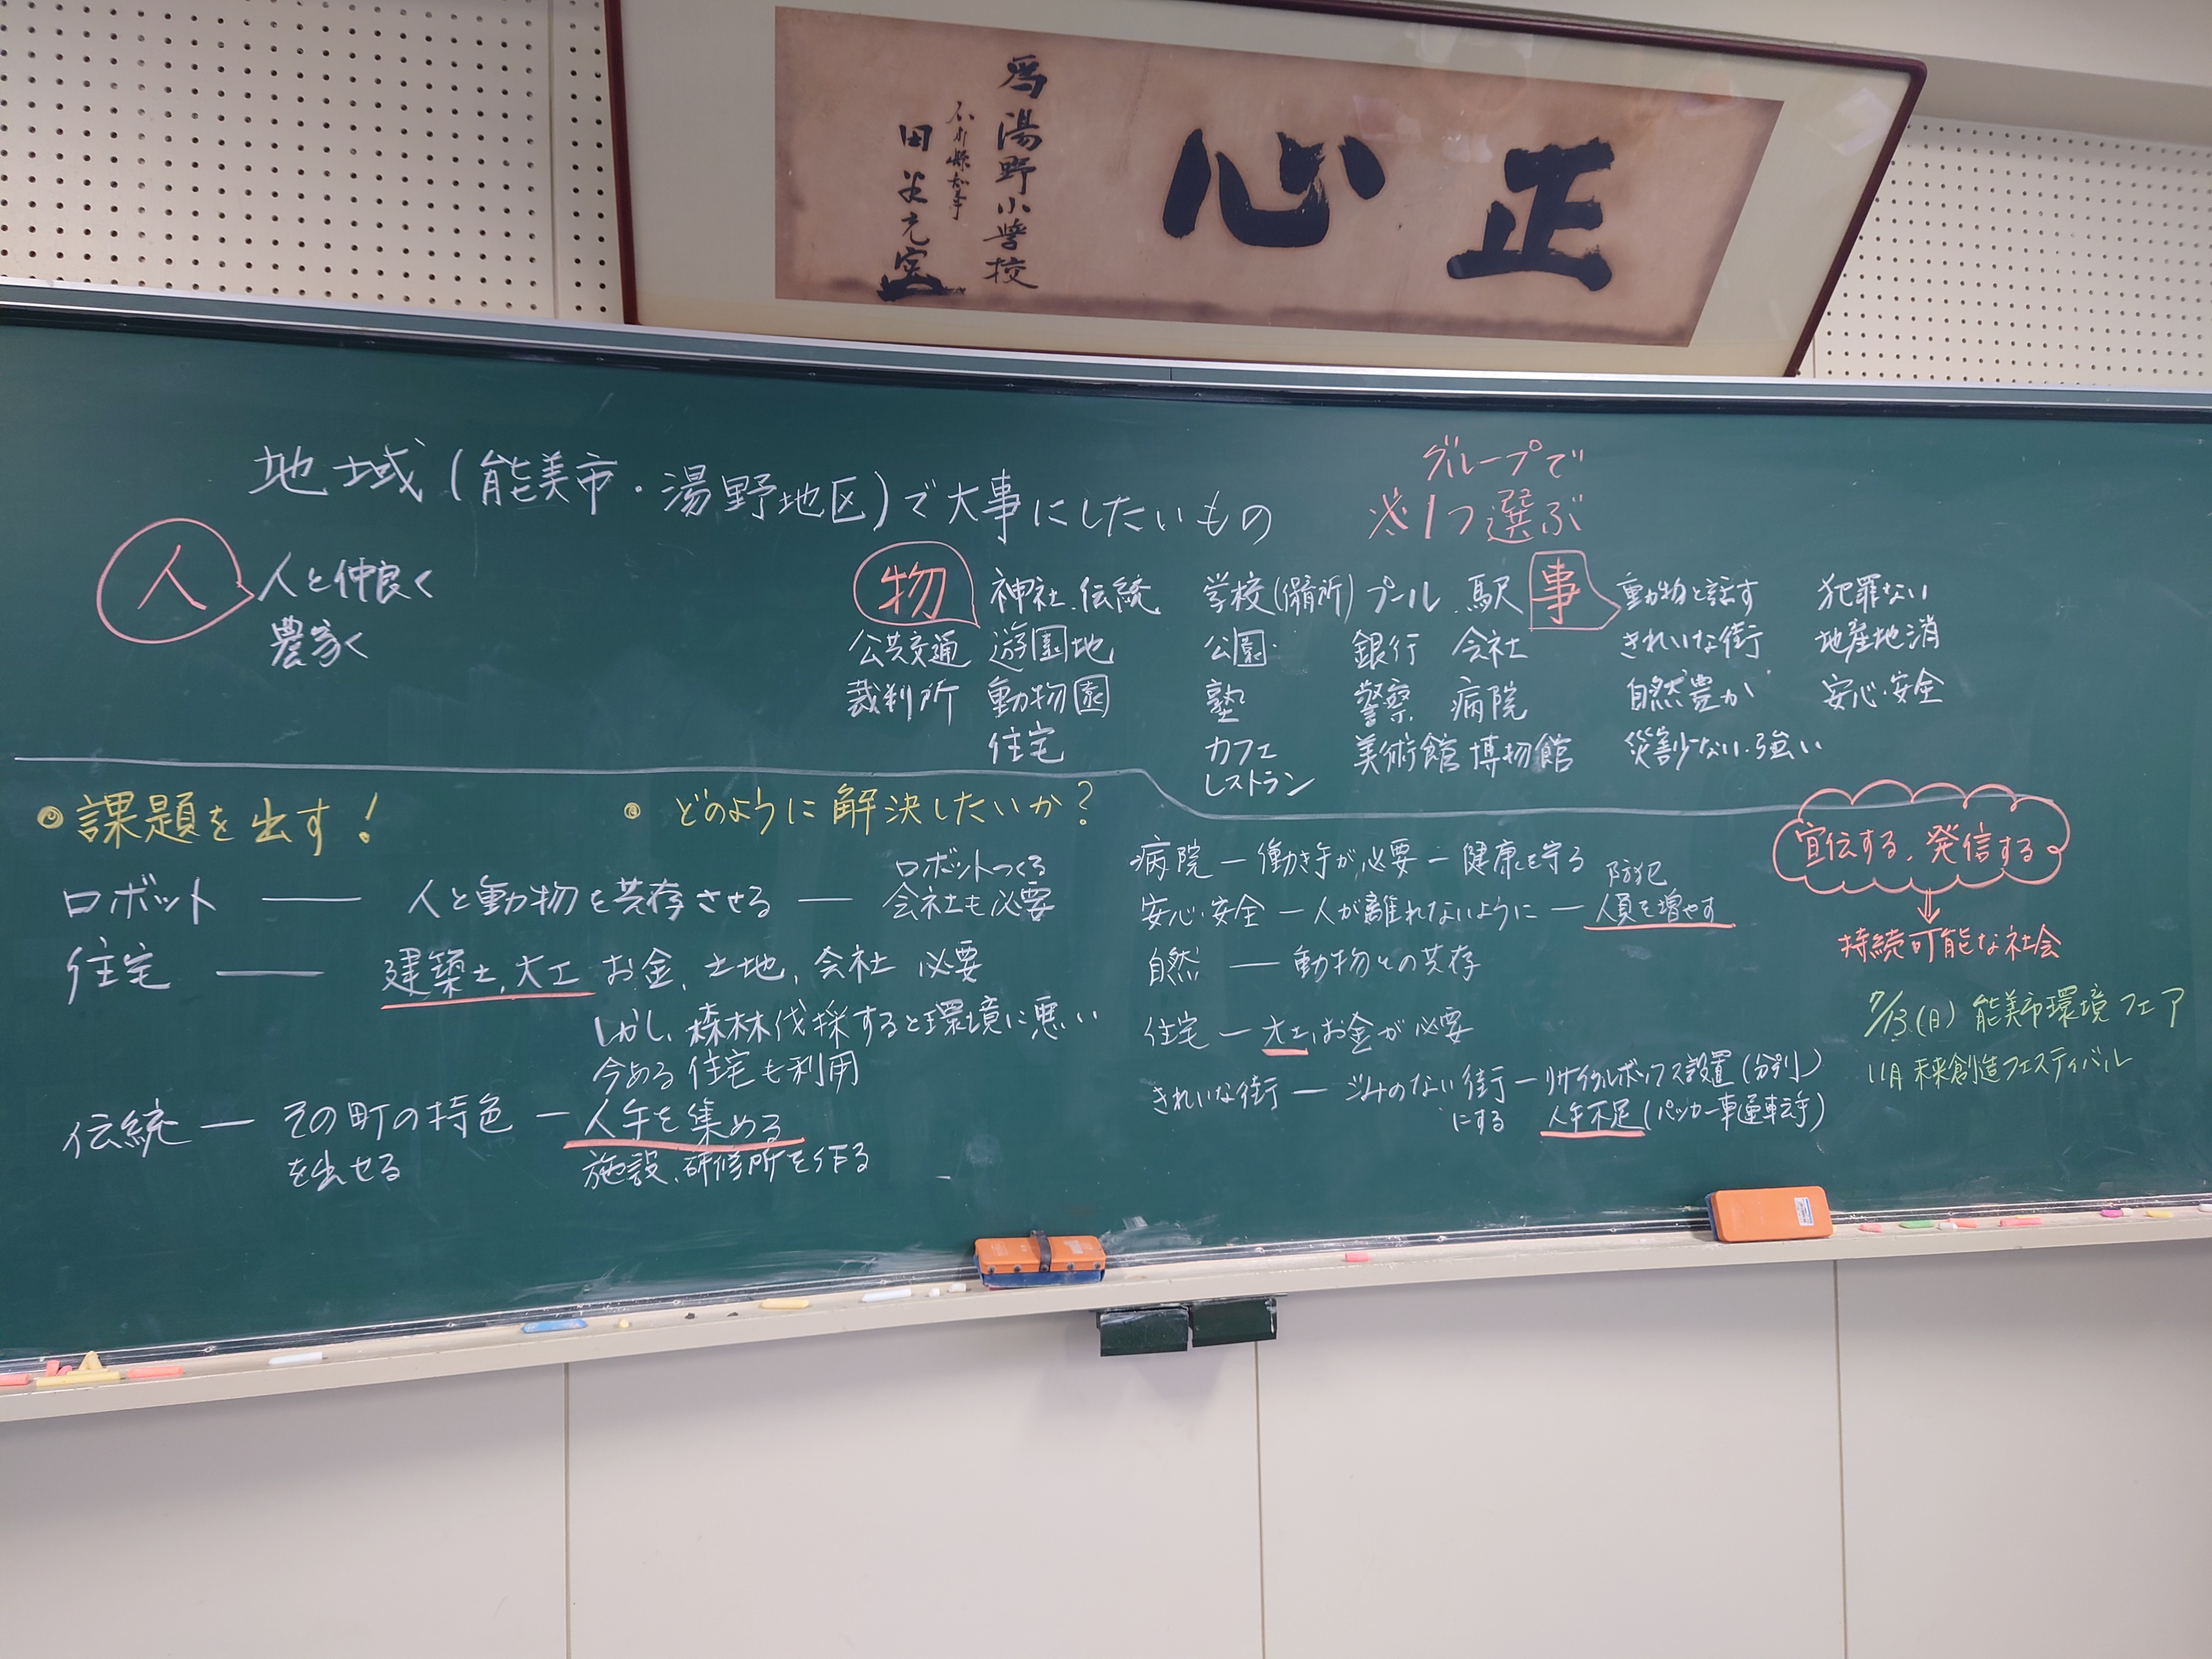 正心
為湯野小学校
石川縣知事
田谷充実
地域(能美市・湯野地区)で大事にしたいもの
グループで
※1つ選ぶ
人
人と仲良く
農家
物
神社、伝統
公共交通 遊園地
裁判所 動物園
住宅
学校(備所) プール 駅
公園 銀行 会社
塾 警察 病院
カフェ 美術館 博物館
レストラン
事
動物と話す 犯罪ない
きれいな街 地産地消
自然豊か 安心・安全
災害少ない・強い
◎課題を出す!
◎どのように解決したいか?
ロボット ― 人と動物を共存させる ― ロボットつくる
会社も必要
住宅 ― 建築士、大工 お金、土地、会社 必要
しかし、森林伐採すると環境に悪い
今ある住宅も利用
伝統 ― その町の特色 ― 人手を集める
を出せる 施設、研修所を作る
病院 ― 働き手が必要 ― 健康を守る
安心・安全 ― 人が離れないように ― 防犯
人員を増やす
自然 ― 動物との共存
住宅 ― 大工、お金が必要
きれいな街 ― ゴミのない街 ― リサイクルボックス設置(分別)
にする 人手不足(パッカー車運転手)
宣伝する、発信する
⇓
持続可能な社会
7/13(日) 能美市環境フェア
11月 未来創造フェスティバル